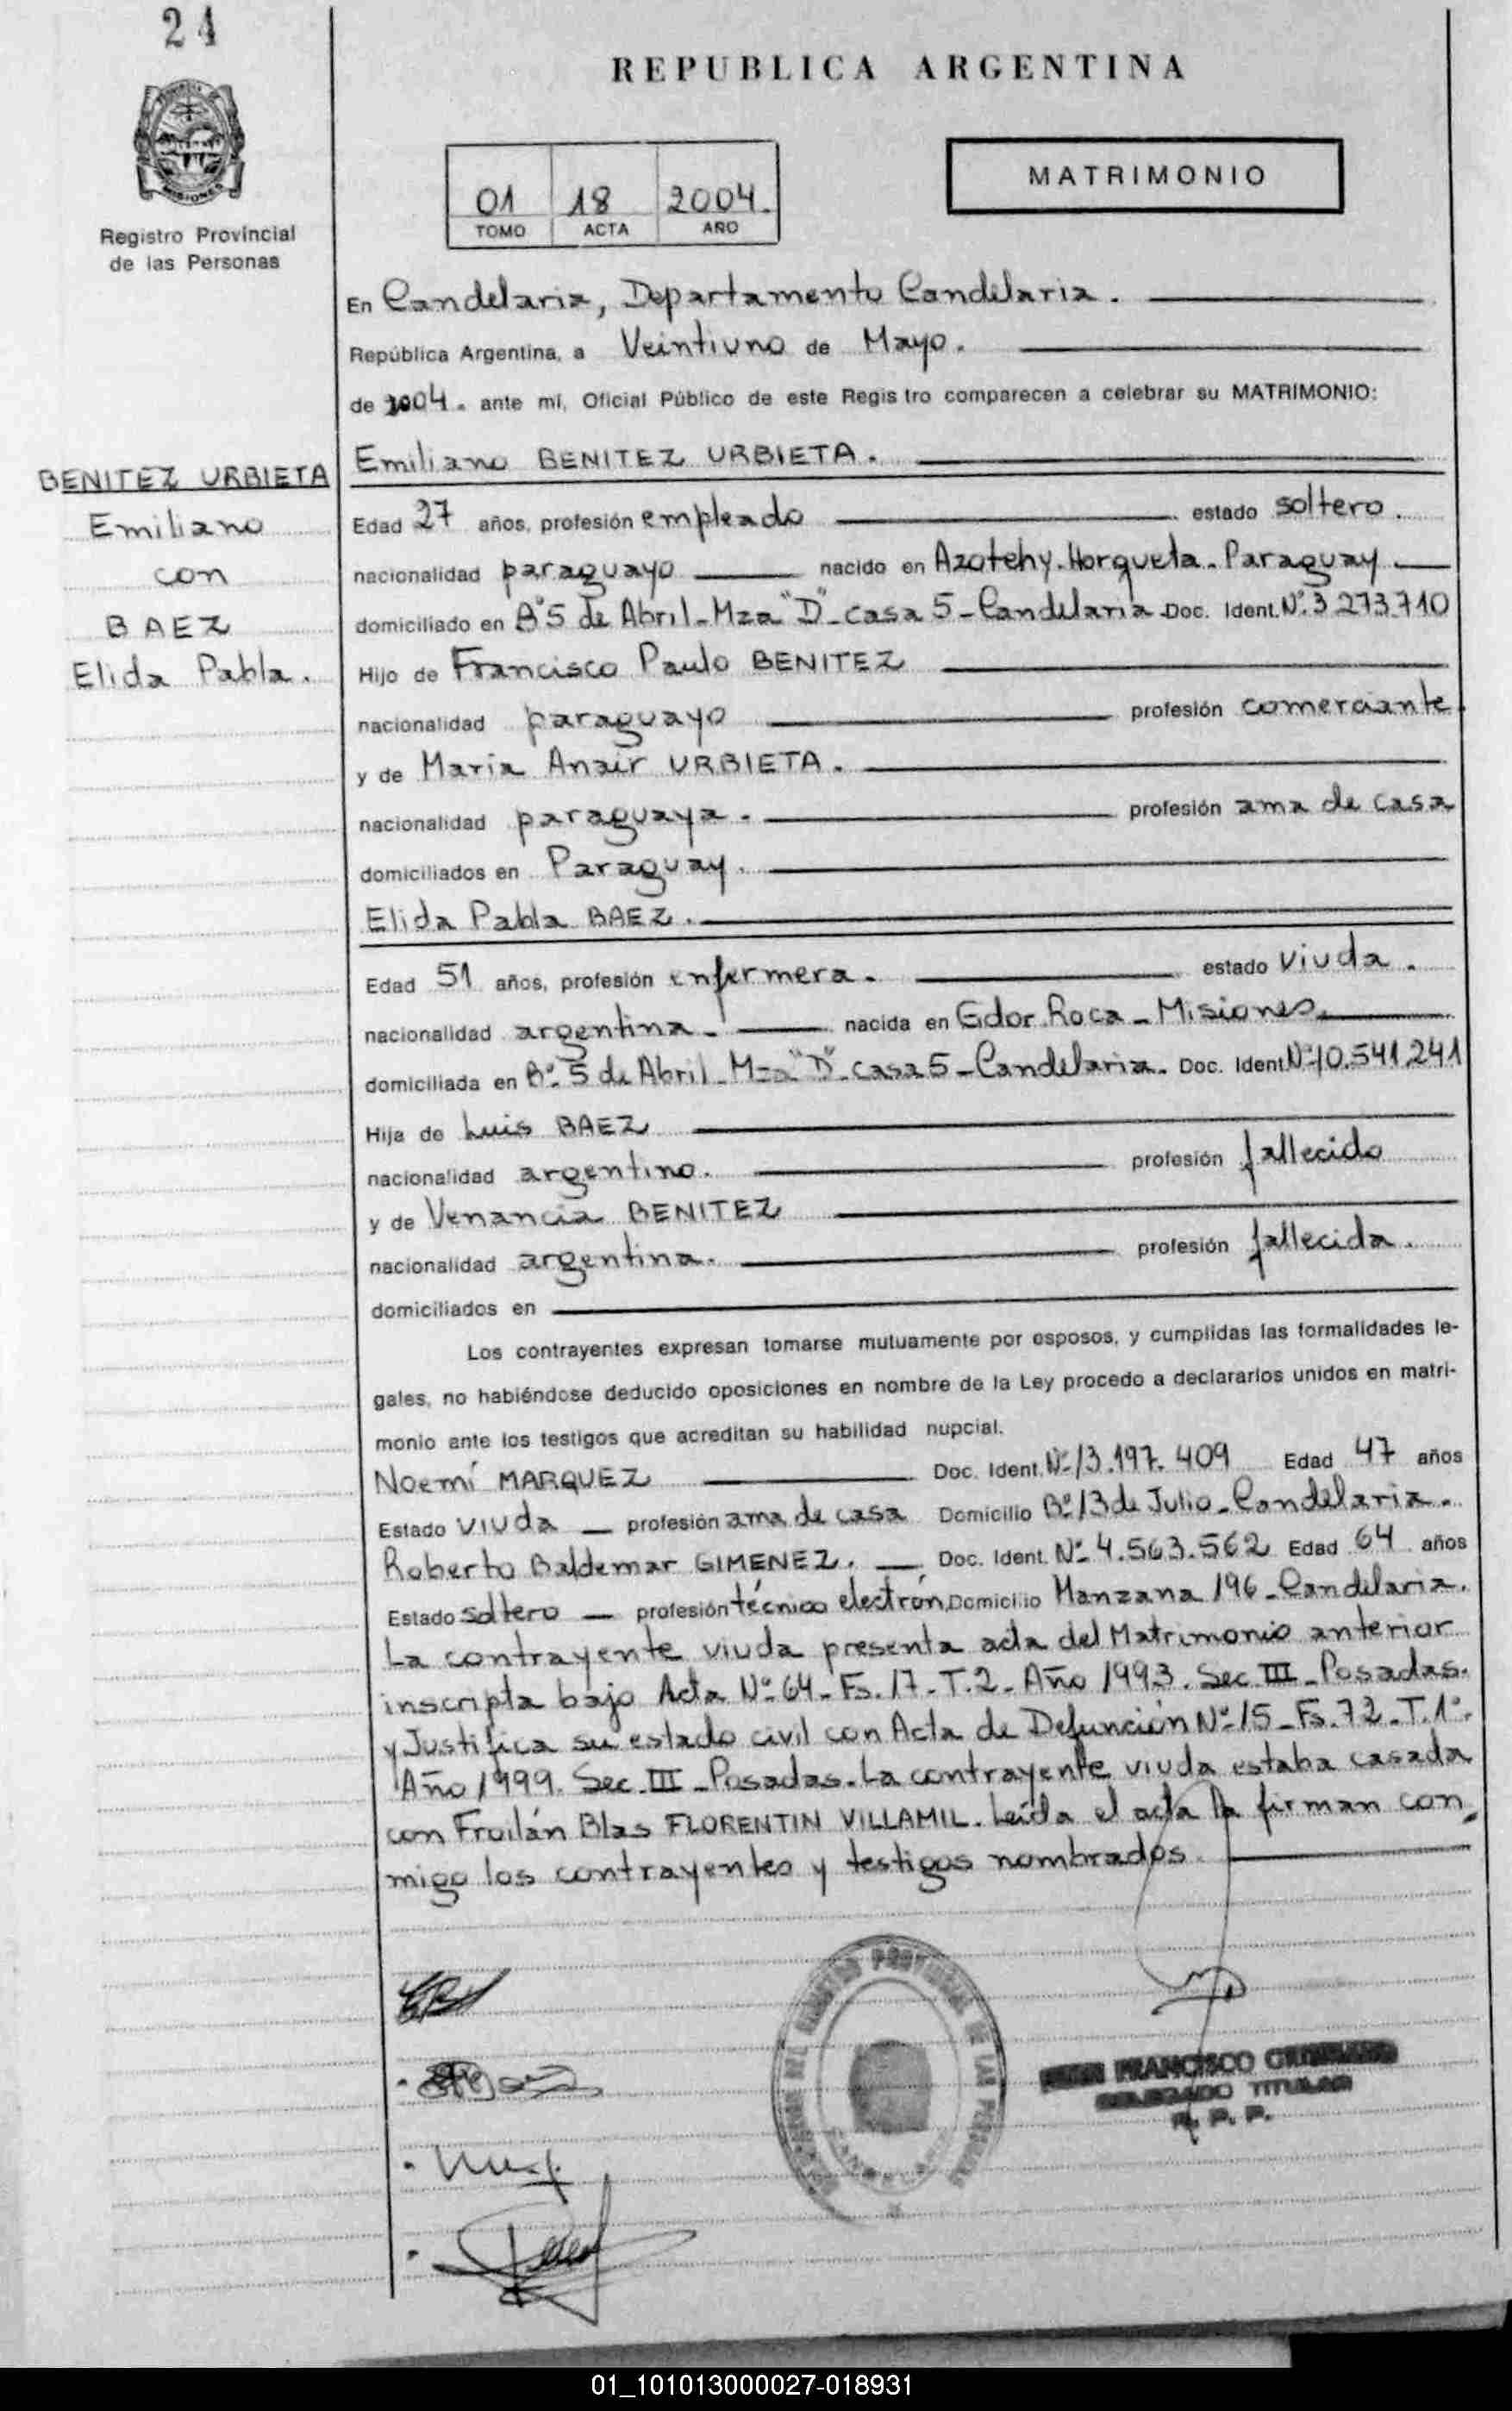 24
REPUBLICA ARGENTINA
MISIONES
Registro Provincial
de las Personas
01 18 2004.
TOMO ACTA AÑO
MATRIMONIO
En Candelaria, Departamento Candelaria.
República Argentina, a Veintiuno de Mayo.
de 2004. ante mí, Oficial Público de este Registro comparecen a celebrar su MATRIMONIO:
BENITEZ URBIETA
Emiliano
con
BAEZ
Elida Pabla.
Emiliano BENITEZ URBIETA.
Edad 27 años, profesión empleado estado soltero.
nacionalidad paraguayo nacido en Azotehy. Horqueta. Paraguay
domiciliado en Bº 5 de Abril - Mza "D" - casa 5 - Candelaria Doc. Ident. Nº 3.273.710
Hijo de Francisco Paulo BENITEZ
nacionalidad paraguayo profesión comerciante.
y de María Anair URBIETA.
nacionalidad paraguaya. profesión ama de casa
domiciliados en Paraguay.
Elida Pabla BAEZ.
Edad 51 años, profesión enfermera. estado viuda.
nacionalidad argentina. nacida en Gdor. Roca - Misiones.
domiciliada en Bº 5 de Abril - Mza "D" - casa 5 - Candelaria. Doc. Ident Nº 10.541.241
Hija de Luis BAEZ
nacionalidad argentino. profesión fallecido
y de Venancia BENITEZ
nacionalidad argentina. profesión fallecida.
domiciliados en
Los contrayentes expresan tomarse mutuamente por esposos, y cumplidas las formalidades le-
gales, no habiéndose deducido oposiciones en nombre de la Ley procedo a declararlos unidos en matri-
monio ante los testigos que acreditan su habilidad nupcial.
Noemí MARQUEZ Doc. Ident. Nº 13.197.409 Edad 47 años
Estado viuda profesión ama de casa Domicilio Bº 13 de Julio - Candelaria.
Roberto Baldemar GIMENEZ. Doc. Ident. Nº 4.563.562 Edad 64 años
Estado soltero profesión técnico electrón. Domicilio Manzana 196 - Candelaria.
La contrayente viuda presenta acta del Matrimonio anterior
inscripta bajo Acta Nº 64 - Fs. 17 - T. 2 - Año 1993. Sec III - Posadas.
y Justifica su estado civil con Acta de Defunción Nº 15 - Fs. 72 - T. 1º.
Año 1999. Sec III - Posadas. La contrayente viuda estaba casada
con Froilán Blas FLORENTIN VILLAMIL. Leída el acta la firman con,
migo los contrayentes y testigos nombrados.
FRANCISCO
DELEGADO TITULAR
R. P. P.
01_101013000027-018931